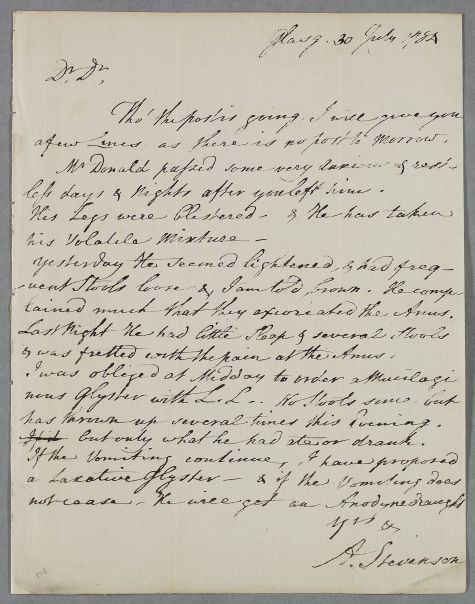 Glasg. 30 July 1784
Dr. Dr,
Tho' the post is going I will give you
a few Lines as there is no post to Morrow.
Mr Donald passed some very anxious & rest-
less days & Nights after you left him.
His Legs were blestered - & He has taken
his Volatile Mixture -
yesterday He seemed lightened, & had freq-
uent Stools loose & I am told brown. He comp-
lained much that they excoreated the Anus.
Last Night He had little Sleep & several Stools
& was fretted with the pain at the Anus.
I was obliged at Midday to order a Mucilagi
nous Glyster with L.L.. No Stools since but
has thrown up several times this Evening.
but only what he had ate or drank.
If the Vomiting continue, I have proposed
a Laxative Glyster - & if the Vomiting does
not cease - He will get an Anodyne draught
Yrs &
A. Stevenson